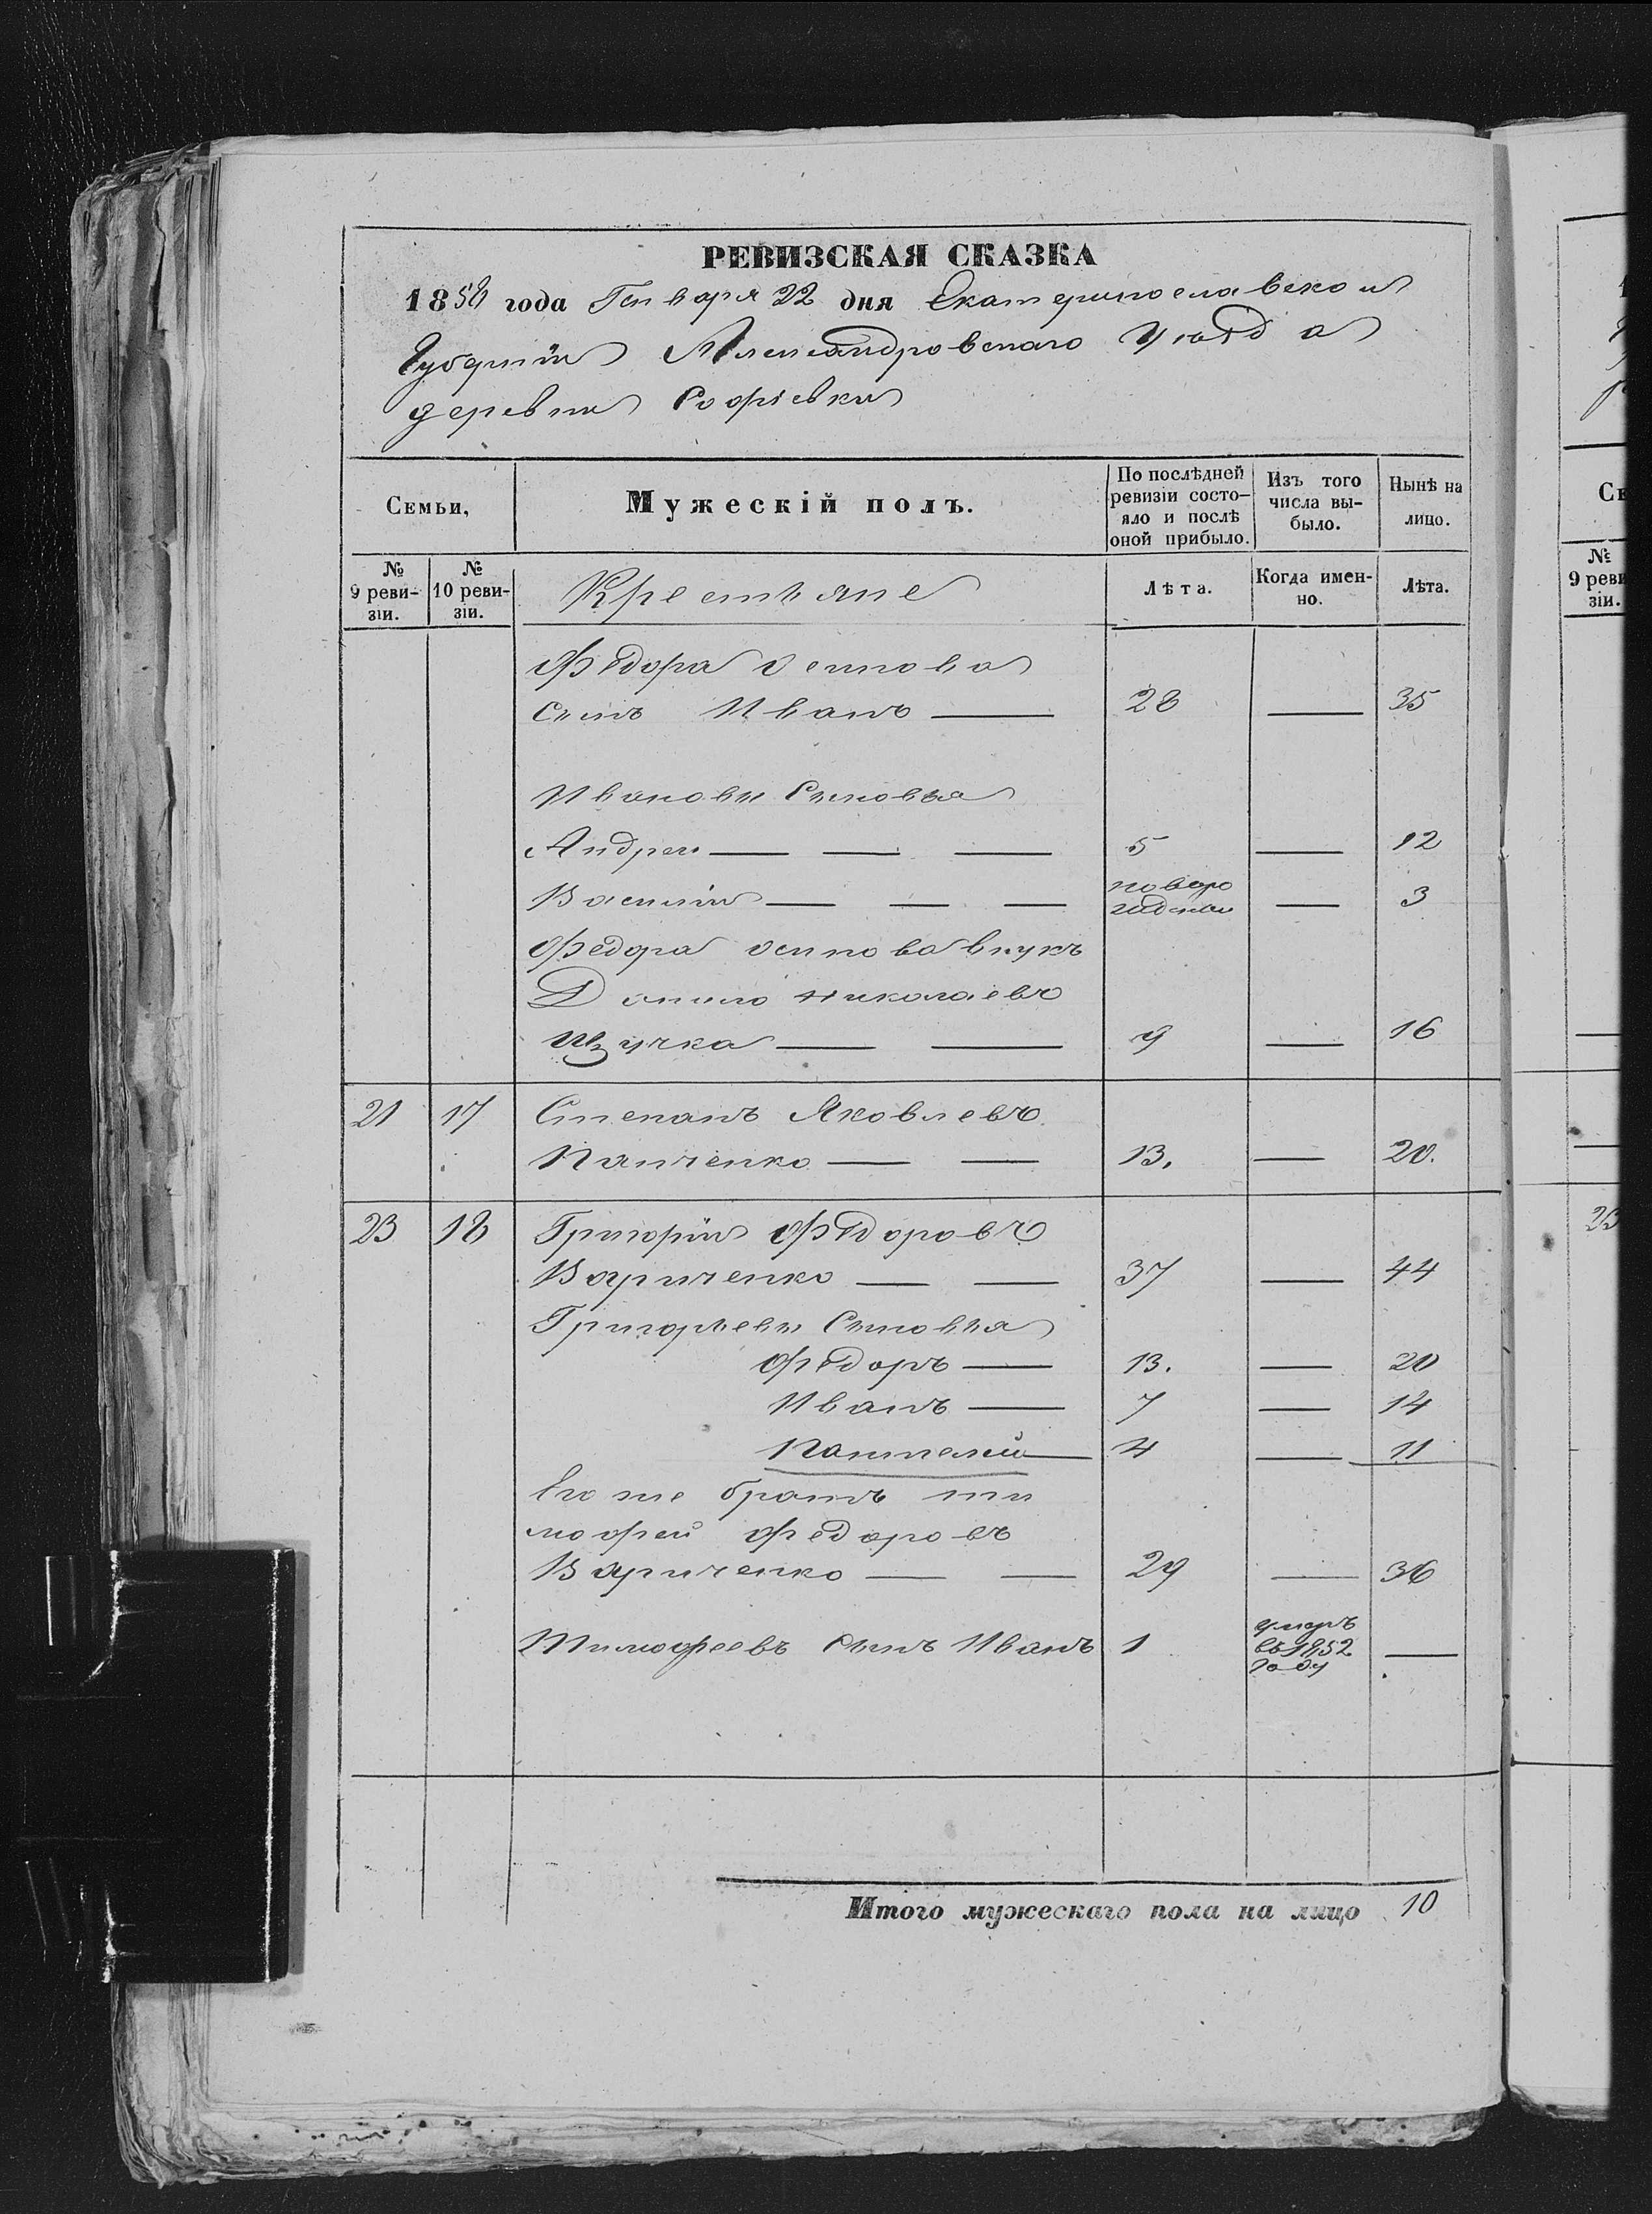 РЕВИЗСКАЯ СКАЗКА
1858 года Генваря 22 дня Екатеринославской
Губерніи Александровскаго Уѣзда
деревни Софіевки
Семьи,
Мужескій полъ.
По послѣдней ревизіи состо-
яло и послѣ
оной прибыло.
Изъ того
числа вы-
было.
Нынѣ на
лицо.
№
9 реви-
зіи.
№
10 реви-
зіи.
Крестьяне
Лѣта.
Когда имен-
но.
Лѣта.
Федора Осипова
Сынъ Иванъ — 28 — 35
Ивановы Сыновья
Андрей — — — 5 — 12
Василій — — — новоро
жденъ — 3
Федора Осипова внукъ
Данило Николаевъ
— — 9 — 16
21 17 Степанъ Яковлевъ
Панченко — — 13. — 20.
23 18 Григорій Федоровъ
Вариченко — — 37 — 44
Григорьевы Сыновья
Федоръ — 13. — 20
Иванъ — 7 — 14
Пантелей — 4 — 11
Его же братъ Ти
мофей Федоровъ
Вариченко — — 29 — 36
Тимофеевъ Сынъ Иванъ 1 умеръ
въ 1852
году —
Итого мужескаго пола на лицо 10
Се
№
9 реви
зіи.
23